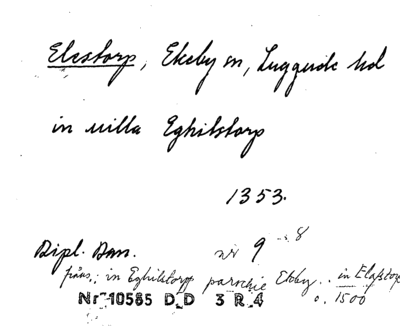 Elestorp, Ekeby sn, Luggude hd
in villa Eghilstorp
1353.
Dipl. Dan. nr 9
påskr.: in Eghilstorp parochie Ekby .. in Elastorp
Nr 10585 D D 3 R 4 c. 1500